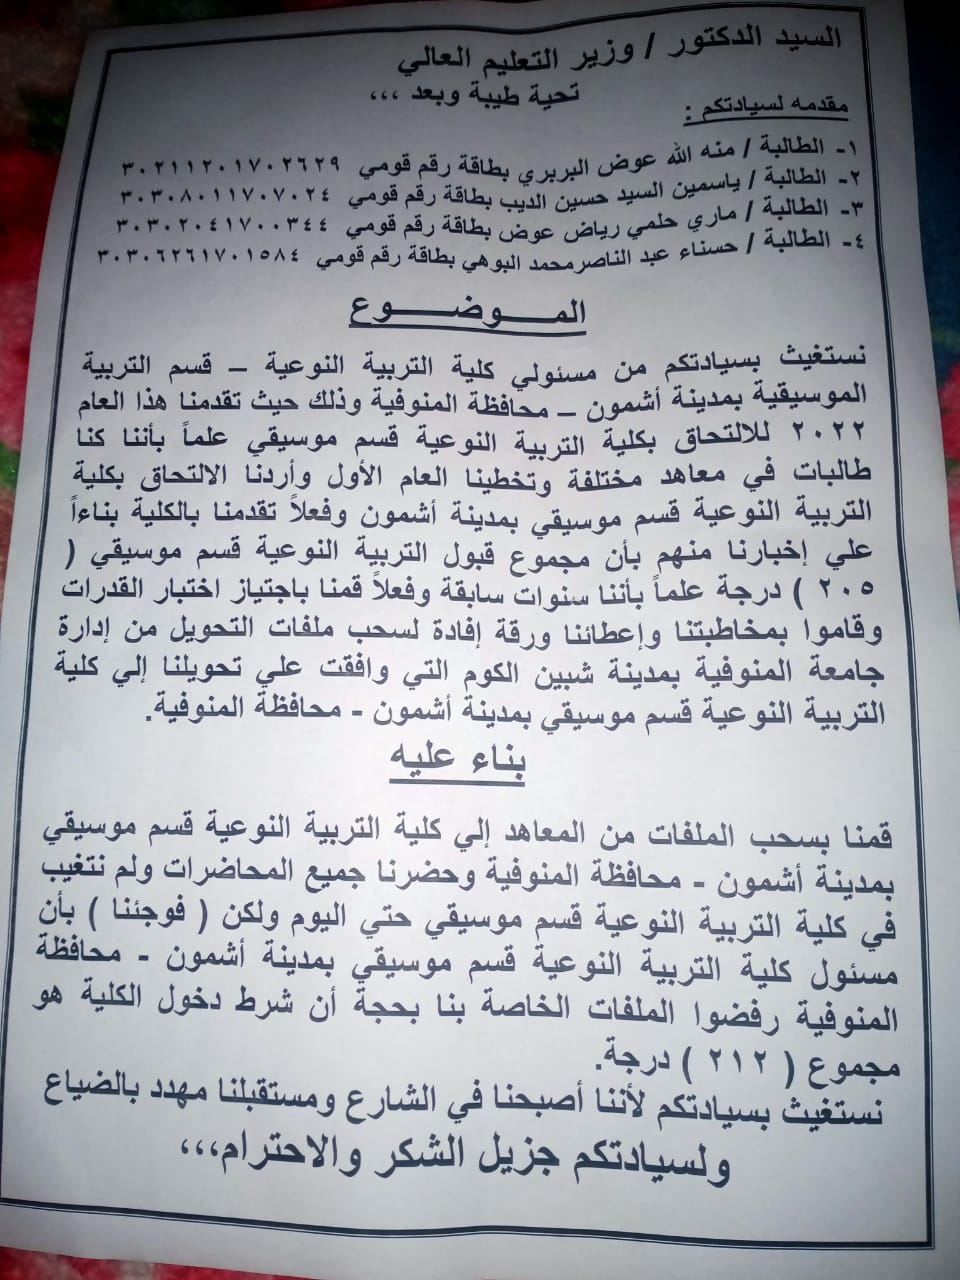 السيد الدكتور / وزير التعليم العالي
تحية طيبة وبعد ،،،
مقدمه لسيادتكم :
١- الطالبة / منه الله عوض البربري بطاقة رقم قومي ٣٠٢١١٢٠١٧٠٢٦٢٩
٢- الطالبة / ياسمين السيد حسين الديب بطاقة رقم قومي ٣٠٣٠٨٠١١٧٠٧٠٢٤
٣- الطالبة / ماري حلمي رياض عوض بطاقة رقم قومي ٣٠٣٠٢٠٤١٧٠٠٣٤٤
٤- الطالبة / حسناء عبد الناصرمحمد البوهي بطاقة رقم قومي ٣٠٣٠٦٢٦١٧٠١٥٨٤
المـــوضـــوع
نستغيث بسيادتكم من مسئولي كلية التربية النوعية – قسم التربية
الموسيقية بمدينة أشمون – محافظة المنوفية وذلك حيث تقدمنا هذا العام
٢٠٢٢ للالتحاق بكلية التربية النوعية قسم موسيقي علماً بأننا كنا
طالبات في معاهد مختلفة وتخطينا العام الأول وأردنا الالتحاق بكلية
التربية النوعية قسم موسيقي بمدينة أشمون وفعلاً تقدمنا بالكلية بناءاً
علي إخبارنا منهم بأن مجموع قبول التربية النوعية قسم موسيقي (
٢٠٥ ) درجة علماً بأننا سنوات سابقة وفعلاً قمنا باجتياز اختبار القدرات
وقاموا بمخاطبتنا وإعطائنا ورقة إفادة لسحب ملفات التحويل من إدارة
جامعة المنوفية بمدينة شبين الكوم التي وافقت علي تحويلنا إلي كلية
التربية النوعية قسم موسيقي بمدينة أشمون - محافظة المنوفية.
بناء عليه
قمنا بسحب الملفات من المعاهد إلي كلية التربية النوعية قسم موسيقي
بمدينة أشمون - محافظة المنوفية وحضرنا جميع المحاضرات ولم نتغيب
في كلية التربية النوعية قسم موسيقي حتي اليوم ولكن ( فوجئنا ) بأن
مسئول كلية التربية النوعية قسم موسيقي بمدينة أشمون - محافظة
المنوفية رفضوا الملفات الخاصة بنا بحجة أن شرط دخول الكلية هو
مجموع ( ٢١٢ ) درجة.
نستغيث بسيادتكم لأننا أصبحنا في الشارع ومستقبلنا مهدد بالضياع
ولسيادتكم جزيل الشكر والاحترام،،،